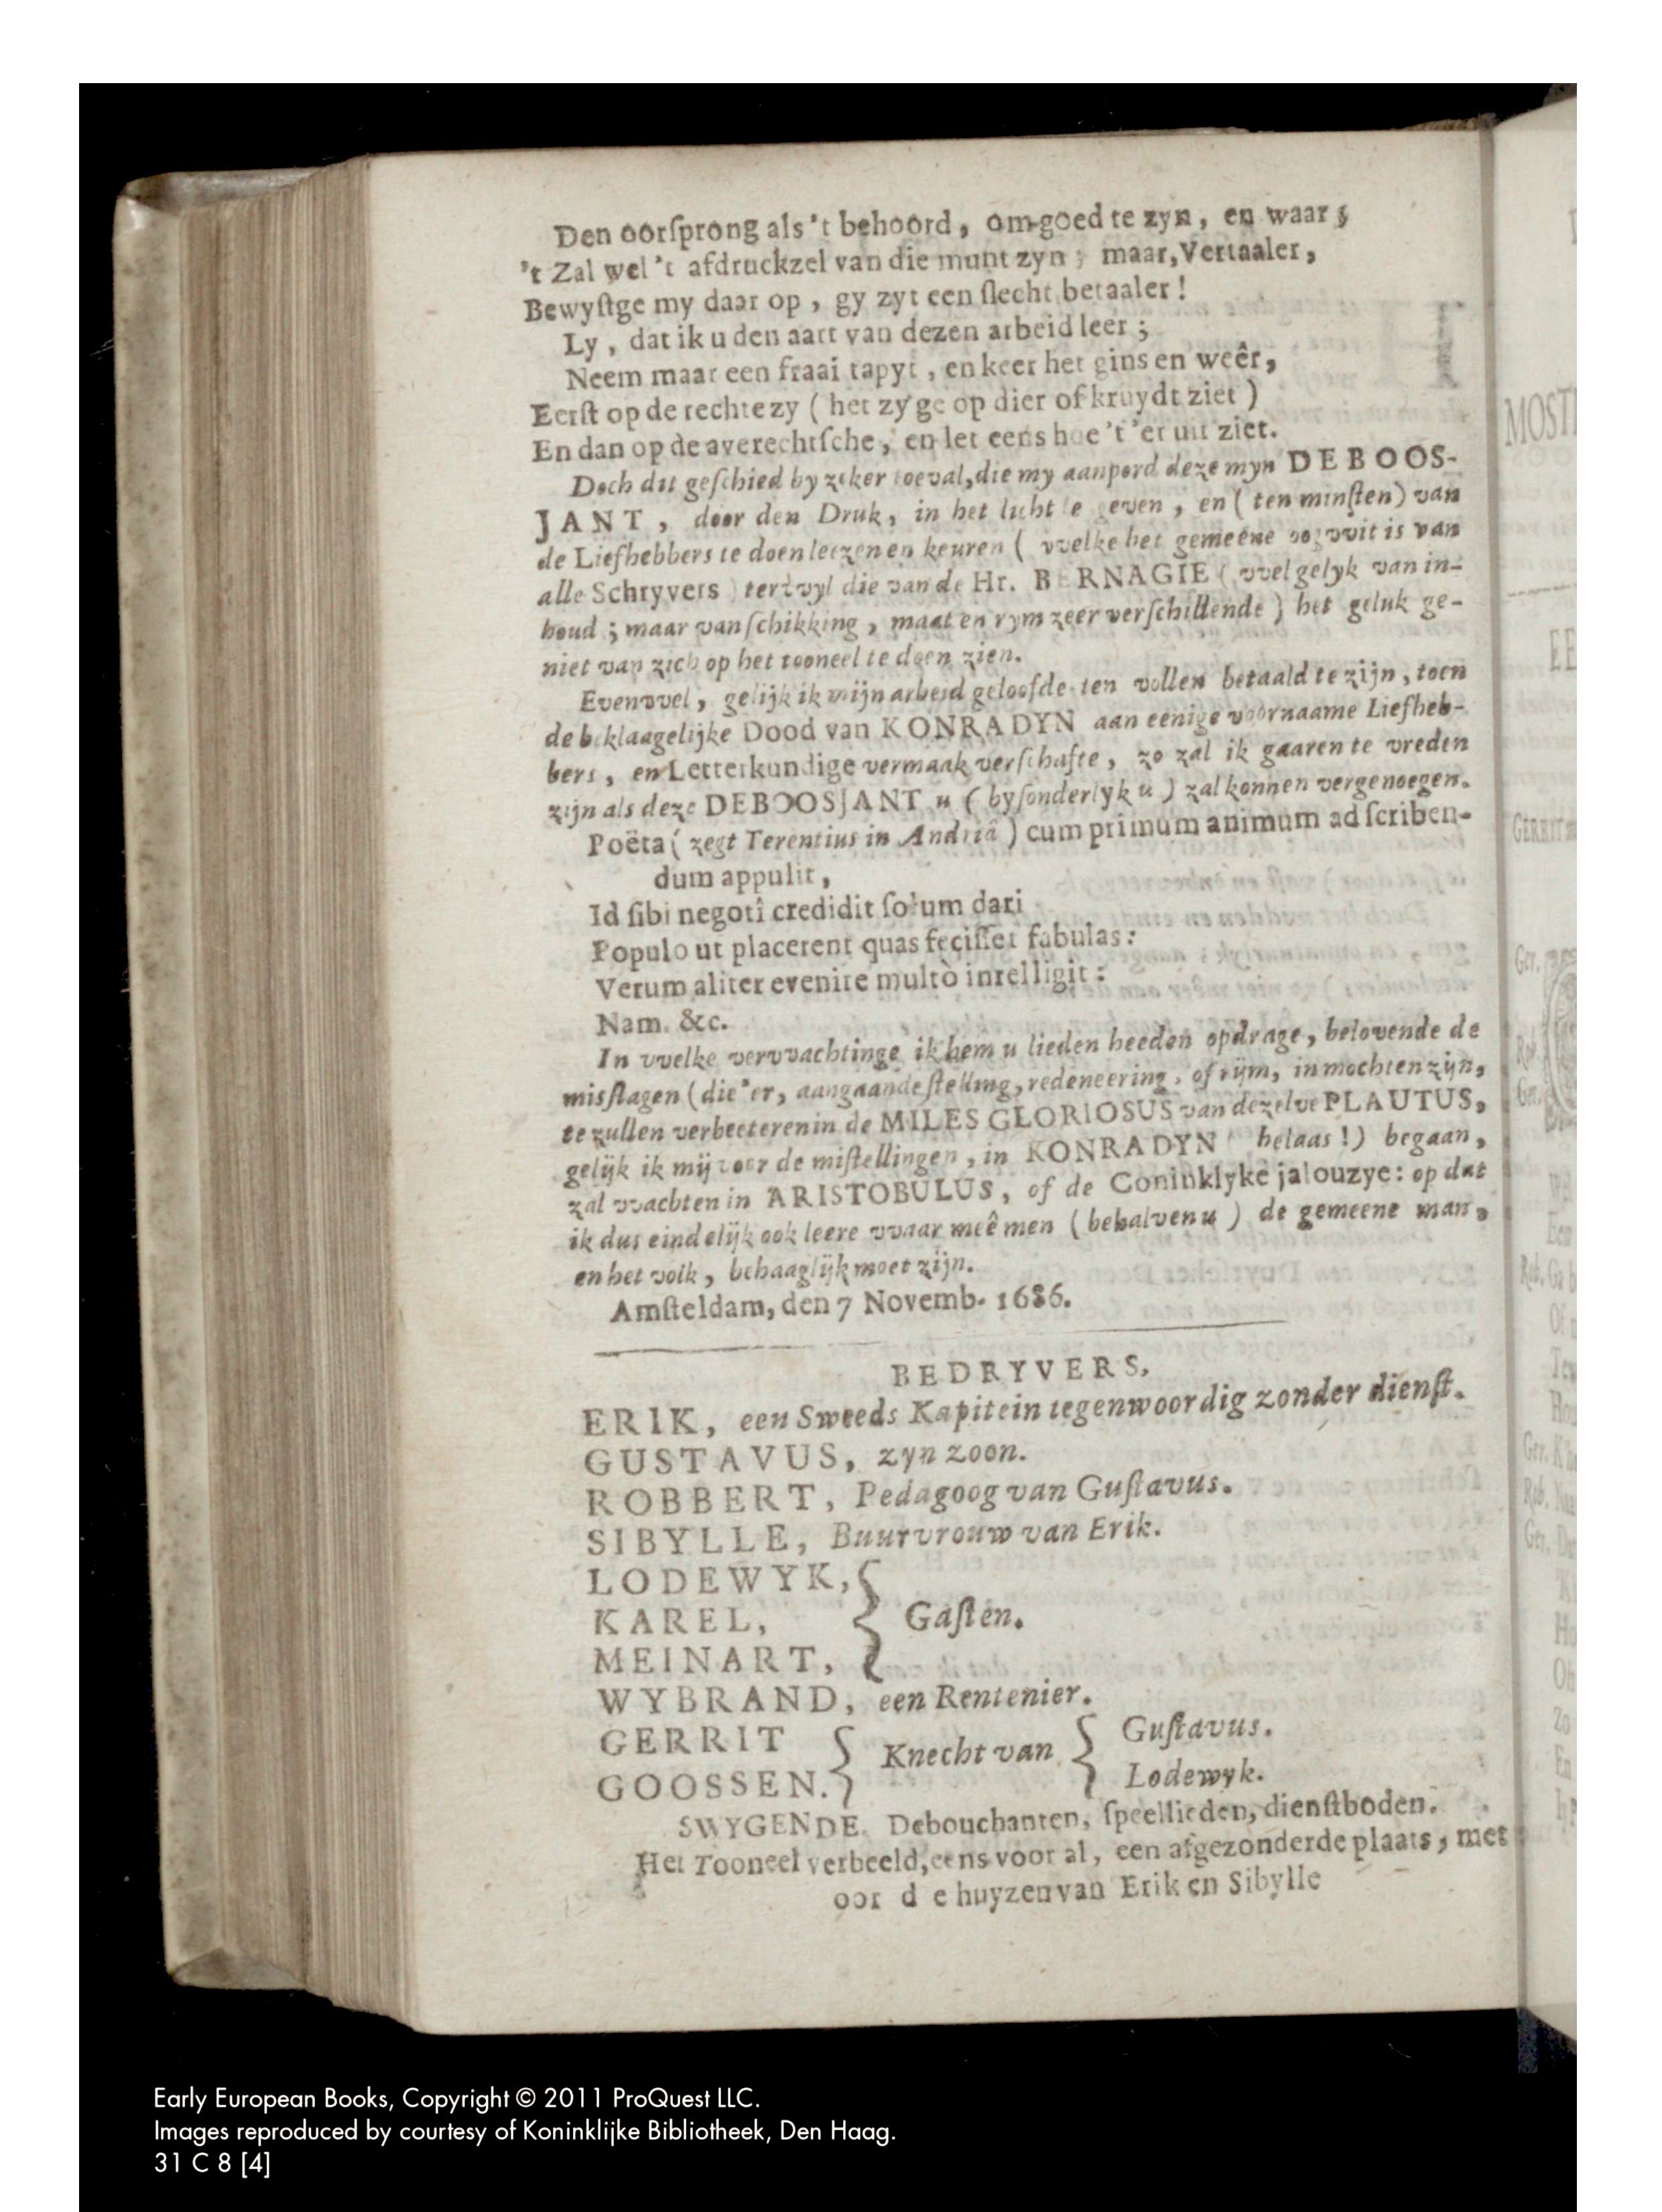 Den oorſprong als 't behoord, om goed te zyn, en waar;
't Zal wel 't afdruckzel van die munt zyn; maar, Vertaaler,
Bewyſtge my daar op, gy zyt een ſlecht betaaler!
Ly, dat ik u den aart van dezen arbeid leer;
Neem maar een fraai tapyt, en keer het gins en weêr,
Eerſt op de rechte zy (het zy ge op dier of kruydt ziet)
En dan op de averechtſche, en let eens hoe 't 'er uit ziet.
Doch dit geſchied by zeker toeval, die my aanpord deze myn DEBOOS-
JANT, door den Druk, in het licht te geven, en (ten minſten) van
de Liefhebbers te doen leezen en keuren (vvelke het gemeene oogvvit is van
alle Schryvers) tertvyl die van de Hr. BERNAGIE (vvel gelyk van in-
houd; maar van ſchikking, maat en rym zeer verſchillende) het geluk ge-
niet van zich op het tooneel te doen zien.
Evenvvel, gelijk ik mijn arbeid geloofde ten vollen betaald te zijn, toen
de beklaagelijke Dood van KONRADYN aan eenige voornaame Liefheb-
bers, en Letterkundige vermaak verſchafte, zo zal ik gaaren te vreden
zijn als deze DEBOOSJANT u (byſonderlyk u) zal konnen vergenoegen.
Poëta (zegt Terentius in Andriâ) cum primum animum ad ſcriben-
dum appulit,
Id ſibi negotî credidit ſolum dari
Populo ut placerent quas feciſſet fabulas:
Verum aliter evenire multò intelligit:
Nam. &c.
In vvelke vervvachtinge ik hem u lieden heeden opdrage, belovende de
misſlagen (die 'er, aangaande ſtelling, redeneering, of rijm, in mochten zijn,
te zullen verbeeteren in de MILES GLORIOSUS van dezelve PLAUTUS,
gelijk ik mij voor de miſtellingen, in KONRADYN (helaas!) begaan,
zal vvachten in ARISTOBULUS, of de Coninklyke jalouzye: op dat
ik dus eindelijk ook leere vvaar meê men (behalven u) de gemeene man,
en het volk, behaaglijk moet zijn.
Amſteldam, den 7 Novemb. 1686.
BEDRYVERS,
ERIK, een Sweeds Kapitein tegenwoordig zonder dienſt.
GUSTAVUS, zyn zoon.
ROBBERT, Pedagoog van Guſtavus.
SIBYLLE, Buurvrouw van Erik.
LODEWYK,
KAREL, } Gaſten.
MEINART,
WYBRAND, een Rentenier.
GERRIT } Knecht van { Guſtavus.
GOOSSEN. Lodewyk.
SWYGENDE. Debouchanten, ſpeellieden, dienſtboden.
Het Tooneel verbeeld, eens voor al, een afgezonderde plaats, met
oor d e huyzen van Erik en Sibylle
MOST
EE
GERRIT
Ger.
Rob.
Ger.
Early European Books, Copyright © 2011 ProQuest LLC.
Images reproduced by courtesy of Koninklijke Bibliotheek, Den Haag.
31 C 8 [4]